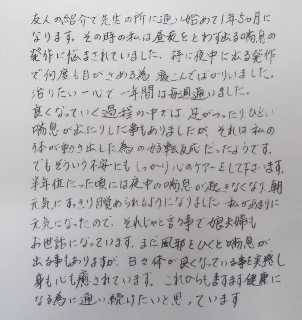 友人の紹介で先生の所に通い始めて1年5ヵ月に
なります。その時の私は昼夜をとわず出る喘息の
発作に悩まされていました。特に夜中に出る発作
で何度も目がさめる為 寝こんでばかりいました。
治りたい一心で一年間は毎週通いました。
良くなっていく過程の中では、足がつったりひどい
喘息が出たりした事もありましたが、それは私の
体が動き出した為の好転反応だったようです。
でもそういう不安にも しっかり心のケアーをして下さいます。
半年位たった頃には夜中の喘息が起きなくなり、朝
元気にすっきり目覚められるようになりました。私があまりに
元気になったので、それじゃと言う事で娘夫婦も
お世話になっています。まだ風邪をひくと喘息が
出る事もありますが、日々体が良くなっている事を実感し
身も心も癒されています。これからもますます健康に
なる為に通い続けたいと思っています